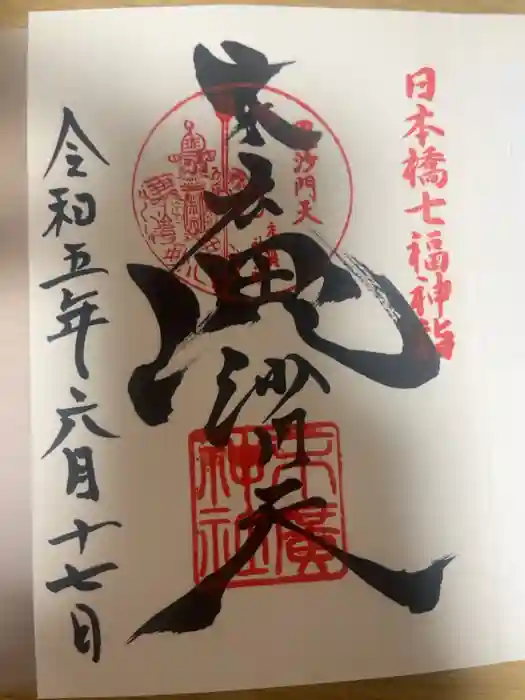 日本橋七福神詣
末広毘沙門天
毘沙門天
末廣神社
令和五年六月十七日